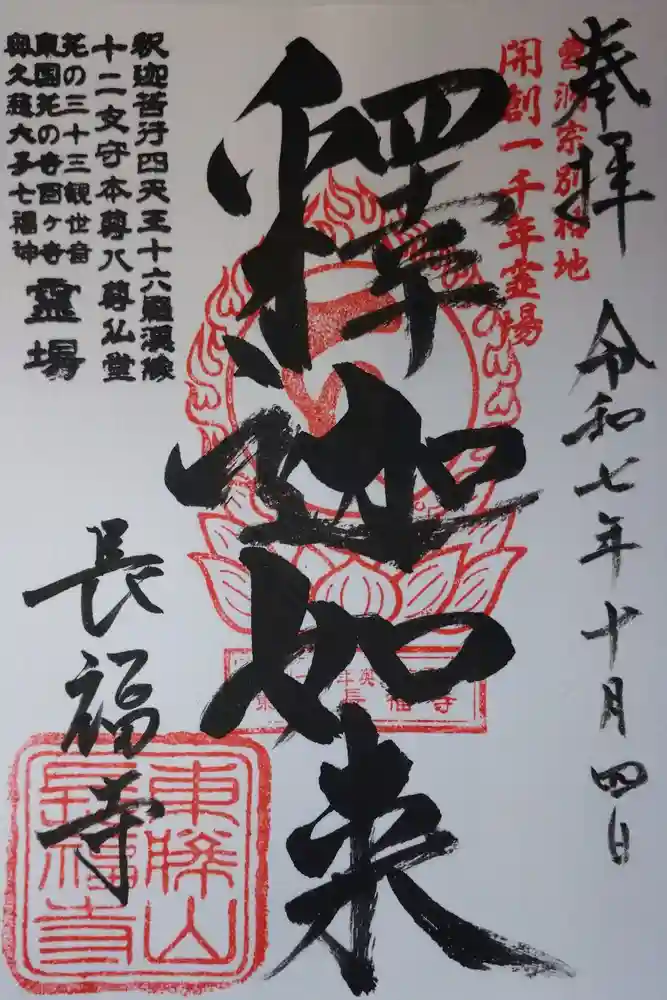 奉拝
令和七年十月四日
曹洞宗別格地
開創一千年霊場
釋迦如来
釈迦苦行四天王十六羅漢像
十二支守本尊八尊仏堂
花の三十三観世音
東国花の寺百ヶ寺
奥久慈大子七福神
霊場
長福寺
東勝山
長福寺